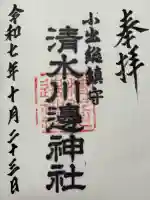 奉拝
小出総鎮守
清水川邊神社
令和七年十月二十三日